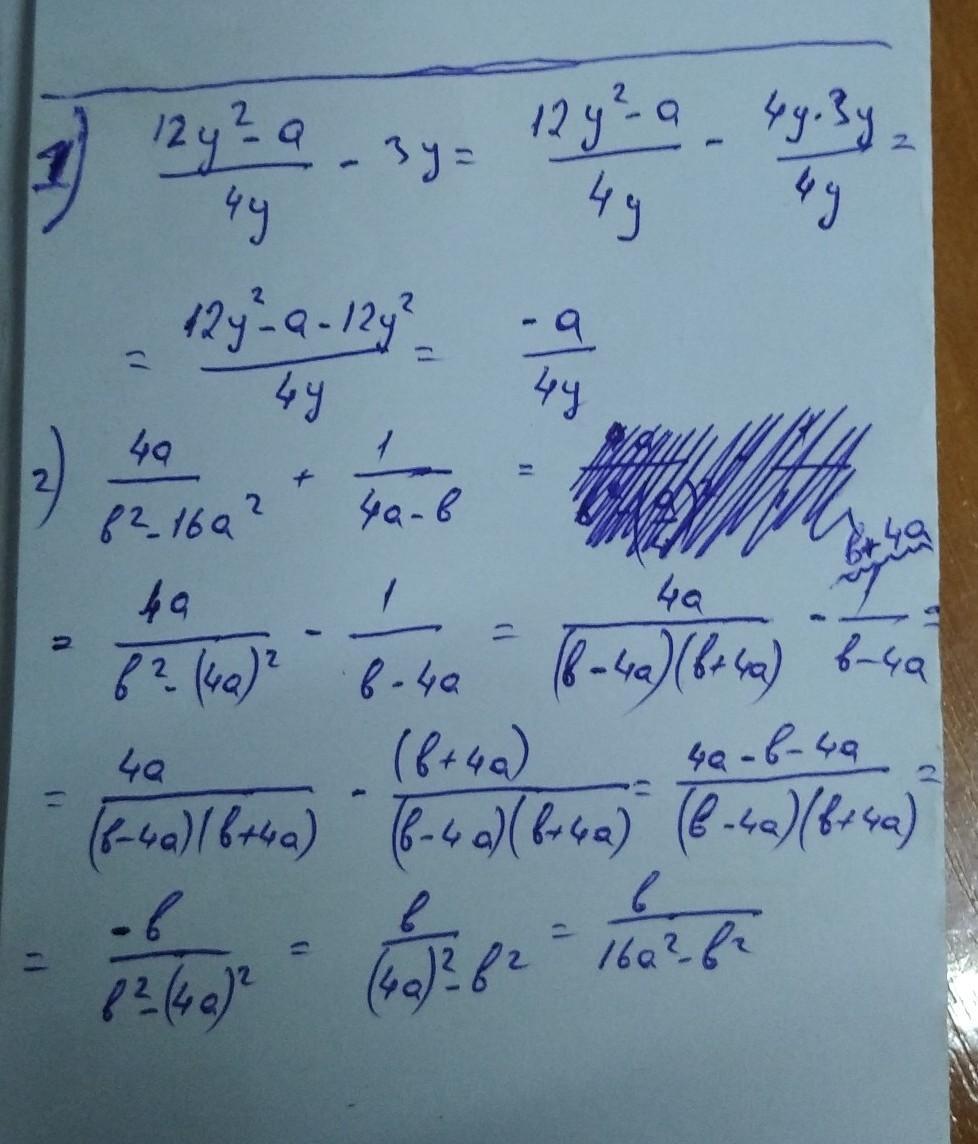 1) \frac{12y^2 - a}{4y} - 3y = \frac{12y^2 - a}{4y} - \frac{4y \cdot 3y}{4y} =
= \frac{12y^2 - a - 12y^2}{4y} = \frac{-a}{4y}
2) \frac{4a}{в^2 - 16a^2} + \frac{1}{4a - в} =
= \frac{4a}{в^2 - (4a)^2} - \frac{1}{в - 4a} = \frac{4a}{(в - 4a)(в + 4a)} - \frac{1}{в - 4a}^{в + 4a} =
= \frac{4a}{(в - 4a)(в + 4a)} - \frac{(в + 4a)}{(в - 4a)(в + 4a)} = \frac{4a - в - 4a}{(в - 4a)(в + 4a)} =
= \frac{-в}{в^2 - (4a)^2} = \frac{в}{(4a)^2 - в^2} = \frac{в}{16a^2 - в^2}